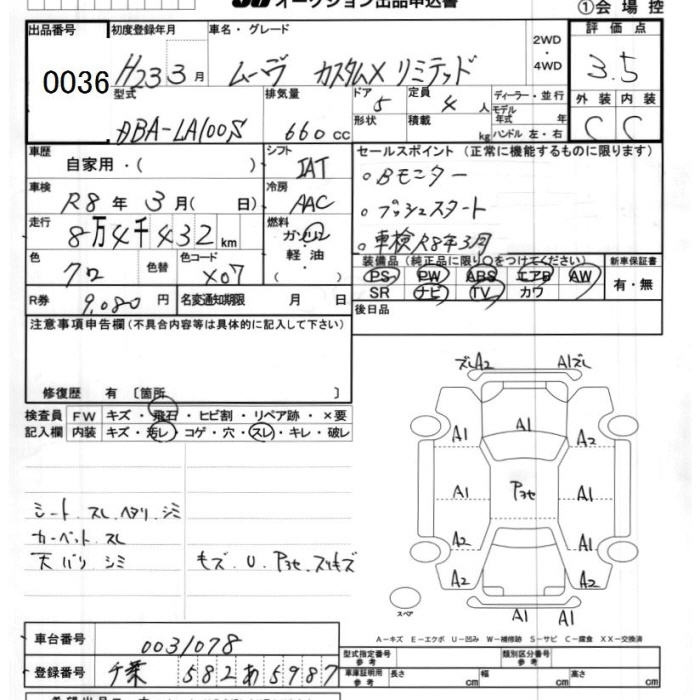 オークション出品申込書
①会場控
出品番号 初度登録年月 車名・グレード 2WD・4WD 評価点
0036 H23 3月 ムーヴ カスタムX リミテッド 3.5
型式 排気量 ドア 定員 ディーラー・並行 外装 内装
DBA-LA100S 660cc 5 4人 モデル年式 年 C C
形状 積載 kg ハンドル 左・右
車歴 自家用・( ) シフト IAT セールスポイント(正常に機能するものに限ります)
車検 R8年 3月( 日) 冷房 AAC 。Bモニター
走行 8万4千432km 燃料 ガソリン 。プッシュスタート
軽油・( ) 。車検R8年3月
色 クロ 色替 色コード X07 装備品(純正品に限り○をつけてください) 新車保証書
PS PW ABS エアB AW 有・無
SR ナビ TV カワ
R券 9,080円 名変通知期限 月 日 後日品
注意事項申告欄(不具合内容等は具体的に記入して下さい)
修復歴 有 〔箇所 〕
検査員 FW キズ・飛石・ヒビ割・リペア跡・×要
記入欄 内装 キズ・汚レ・コゲ・穴・スレ・キレ・破レ
シート.スレ.ヘタリ.シミ
カーペット.スレ
天バリ シミ キズ.U.Pヨセ.スリキズ
ズレA2 A1ズレ
A1 A1 A2
A1 Pヨセ A1
A2 A1
A2 A2
A1 A1
スペア
A-キズ E-エクボ U-凹み W-補修跡 S-サビ C-腐食 XX-交換済
車台番号 0031078
登録番号 千葉 582 あ 5987
型式指定番号 参考 類別区分番号 参考
車庫証明用 参考 長さ cm 幅 cm 高さ cm